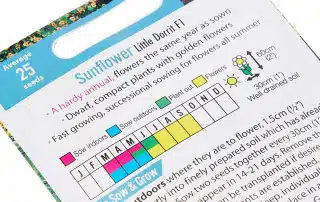 Average
25
seeds
Sunflower Little Dorrit F1
· A hardy annual, flowers the same year as sown
· Dwarf, compact plants with golden flowers
· Fast growing, successional sowing for flowers all summer
Sow indoors Sow outdoors Plant out Flowers
60cm
(2')
30cm (1')
Well drained soil
J F M A M J J A S O N D
Sow & Grow
outdoors where they are to flower, 1.5cm (½")
into finely prepared soil which has already
Sow two seeds together every 30cm (1
appear in 14-21 days. Remove the
can be transplanted if desired
plants are established.
, indivi
place in